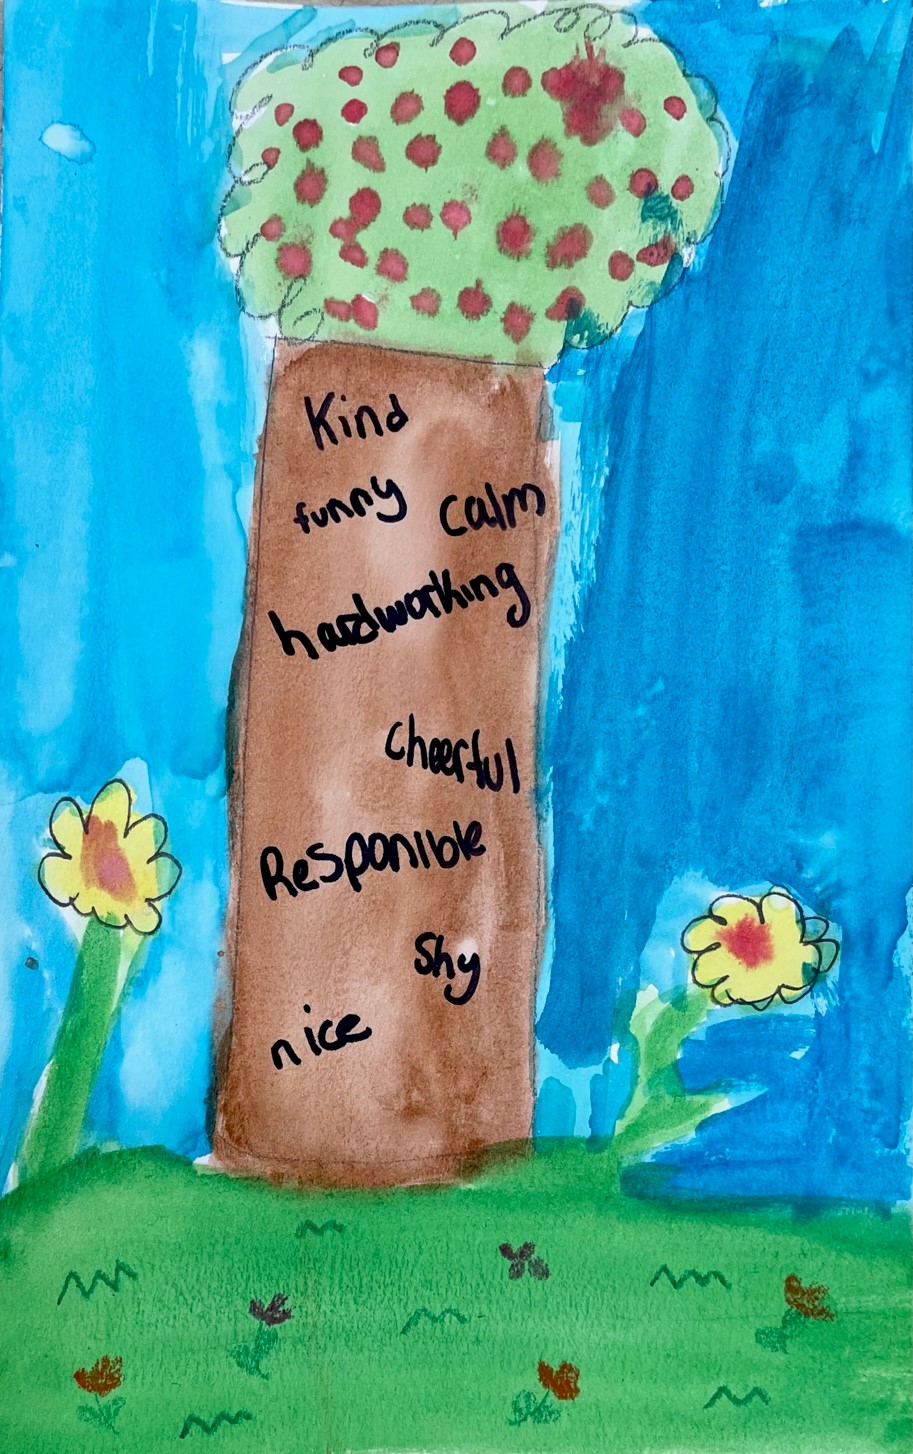 Kind
funny calm
hardworking
cheerful
Responible
Shy
nice